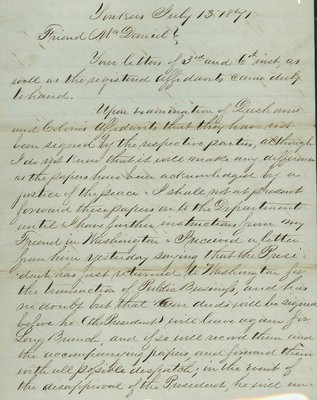 Yonkers July 13 1871
Friend McDaniel
Your letters of 3rd and 6th inst, as
well as the registered affidavits came duly
to hand.
Upon examination of
and affidavits that they have not
been signed by the respective parties, although
I do not know that it will make any difference
as the papers have been acknowledged by a
justice of the peace - I shall not at present
forward these papers on to the Department
until I have further instructions from my
Friend in Washington - I received a letter
from him yesterday saying that the Presi-
dent has just returned to Washington for
the transaction of Public Business, and has
no doubt but that deeds will be signed
before he (the President) will leave again for
Long Branch, and if so will record them and
the accompanying papers, and forward them
with all possible despatch; in the event of
the disapproval of the President, he will